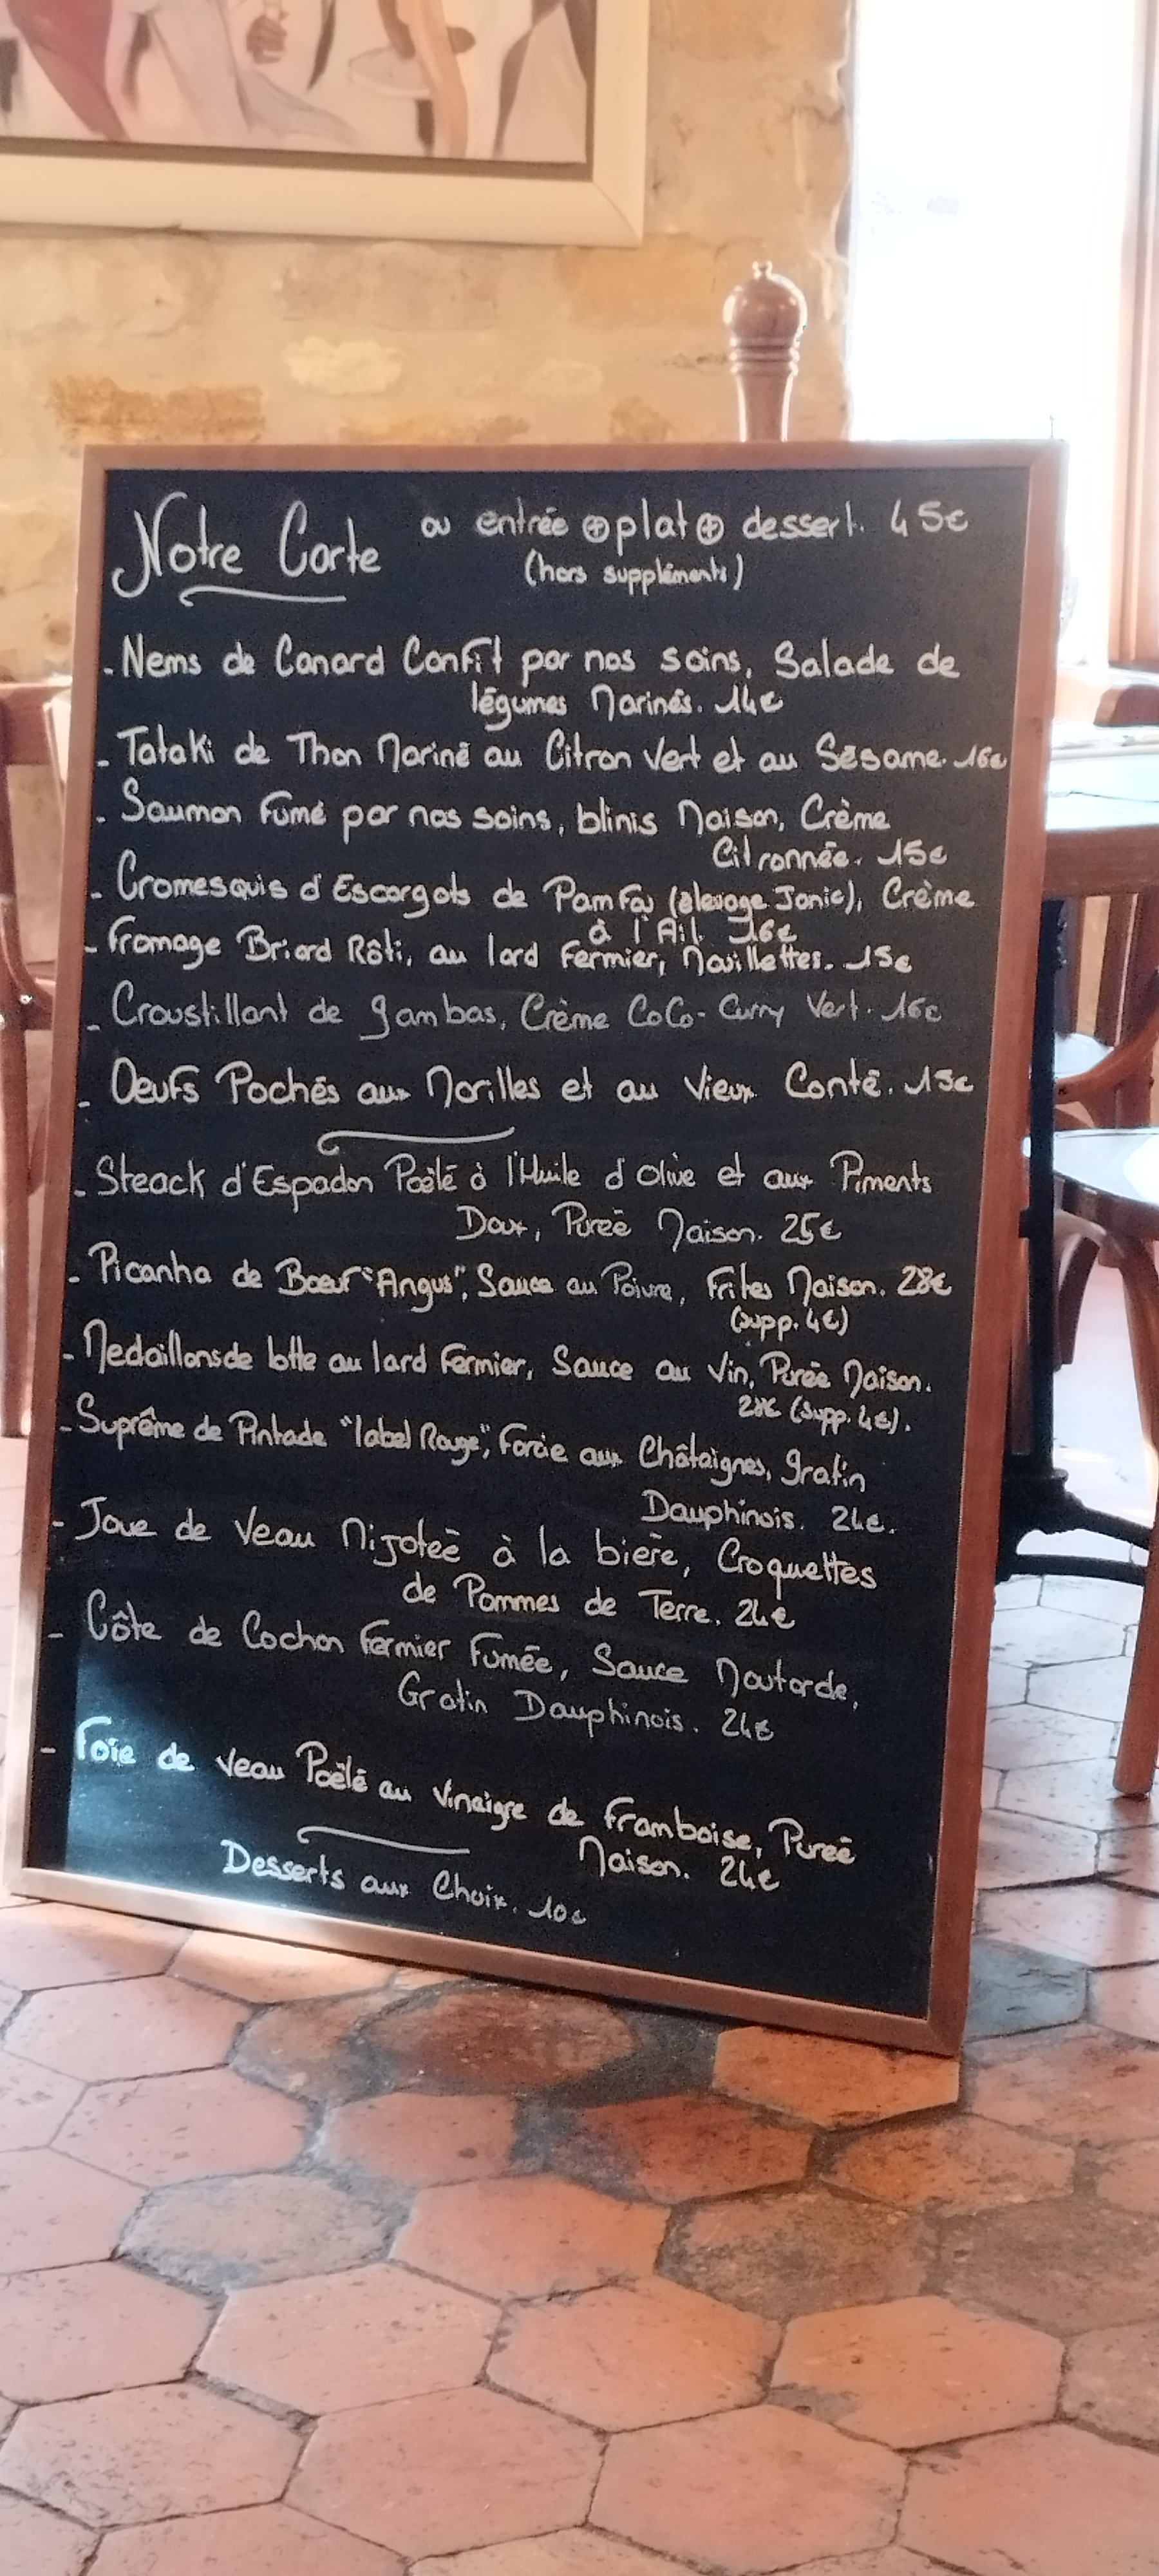 Notre Carte ou entrée ⊕ plat ⊕ dessert. 45€
(hors suppléments)
- Nems de Canard Confit par nos soins, Salade de
légumes Marinés. 14€
- Tataki de Thon Mariné au Citron Vert et au Sésame. 16€
- Saumon Fumé par nos soins, blinis Maison, Crème
Citronnée. 15€
- Cromesquis d'Escargots de PamFou (élevage Janic), Crème
à l'Ail. 16€
- Fromage Briard Rôti, au lard Fermier, Mouillettes. 15€
- Croustillant de gambas, Crème CoCo-Curry Vert. 16€
- Oeufs Pochés aux Morilles et au Vieux Conté. 15€
- Steack d'Espadon Poêlé à l'Huile d'Olive et aux Piments
Doux, Pureé Maison. 25€
- Picanha de Bœuf "Angus", Sauce au Poivre, Frites Maison. 28€
(supp. 4€)
- Medaillons de lotte au lard Fermier, Sauce au Vin, Purée Maison.
28€ (supp. 4€).
- Suprême de Pintade "label Rouge", Farcie aux Châtaignes, gratin
Dauphinois. 24€.
- Joue de Veau Mijoteé à la bière, Croquettes
de Pommes de Terre. 24€
- Côte de Cochon Fermier Fumée, Sauce Moutarde,
Gratin Dauphinois. 24€
- Foie de veau Poêlé au vinaigre de framboise, Pureé
Maison. 24€
Desserts aux Choix. 10€